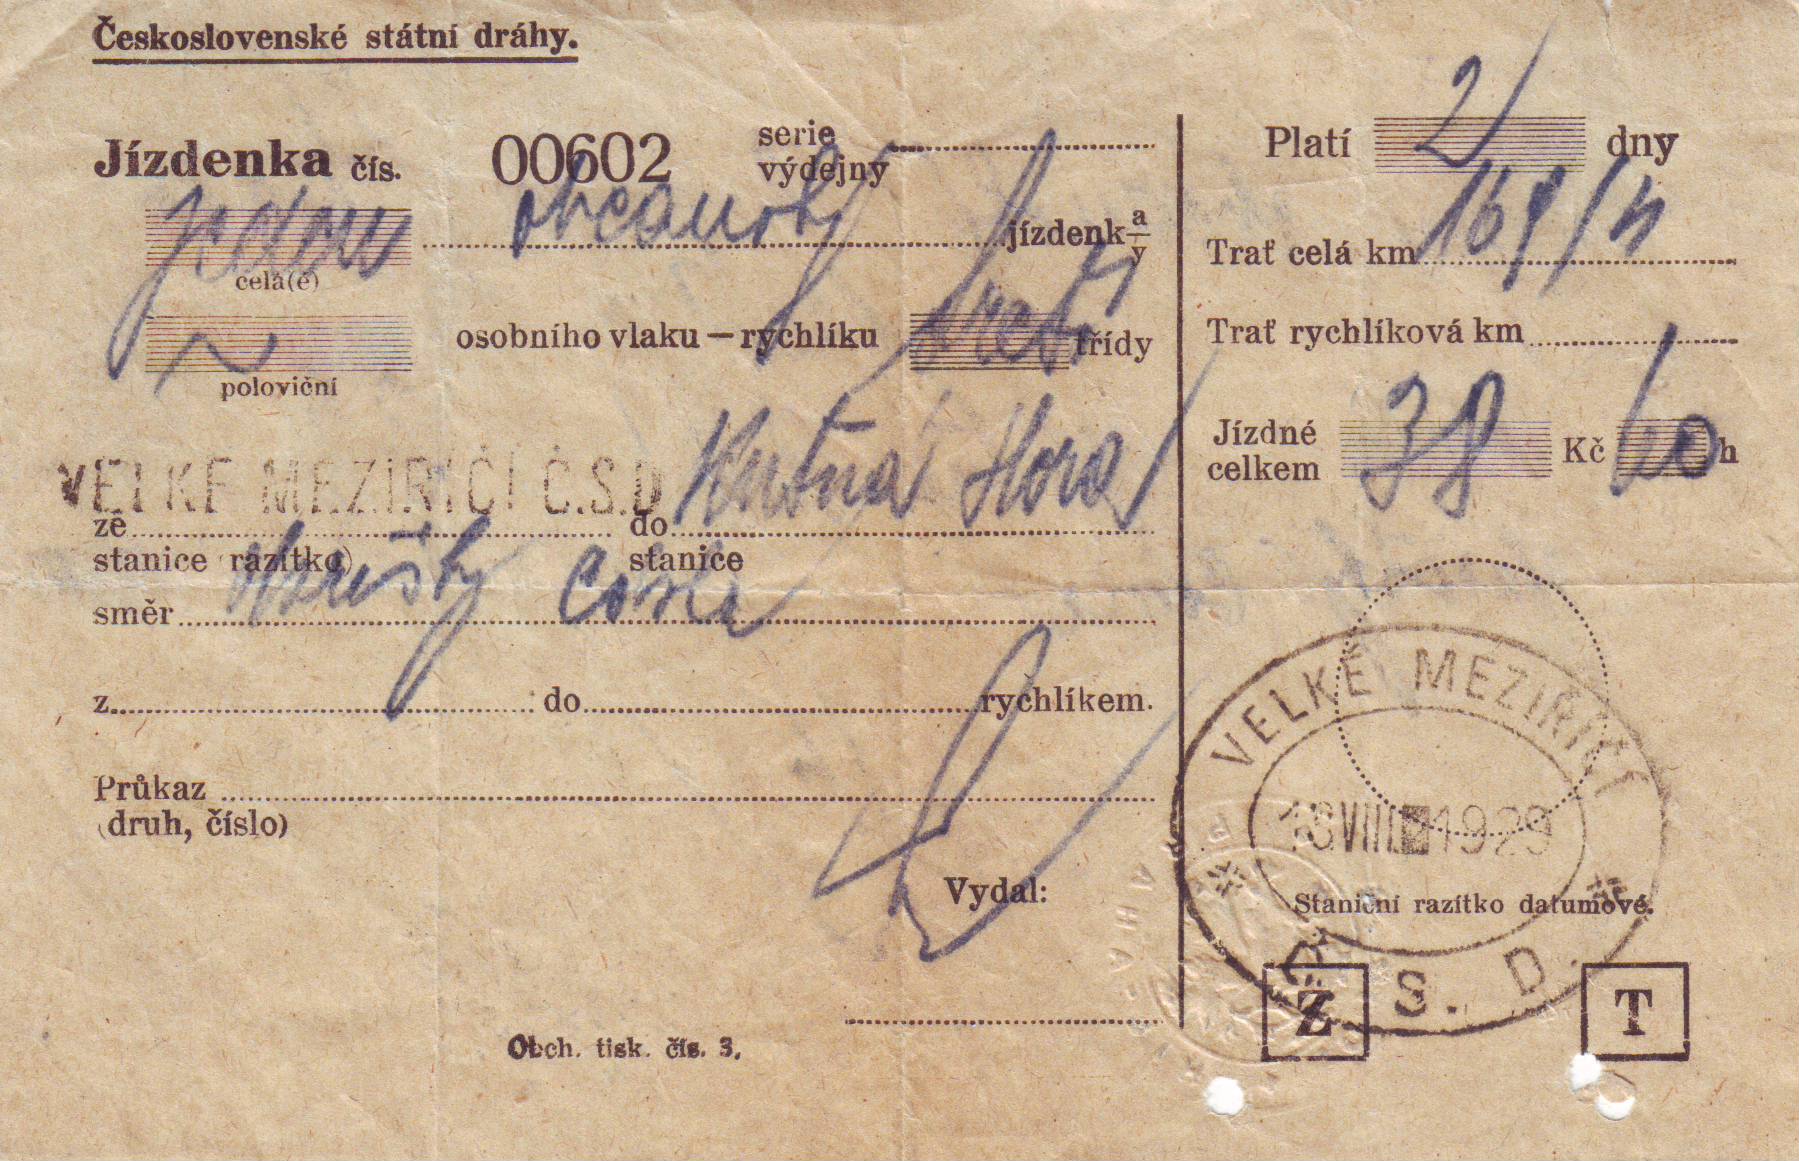 Československé státní dráhy.
Jízdenka čís. 00602 serie
výdejny
jízdenk a/y
celá(é)
poloviční
osobního vlaku — rychlíku třetí třídy
VELKÉ MEZIŘÍČÍ Č.S.D.
ze do Kutná Hora
stanice (razítko) stanice
směr
z do rychlíkem.
Průkaz
(druh, číslo)
Vydal:
Obch. tisk. čís. 3.
Platí 2 dny
Trať celá km
Trať rychlíková km
Jízdné
celkem 38 Kč 60 h
VELKÉ MEZIŘÍČÍ
VIII. 1929
Staniční razítko datumové.
Č. S. D.
Z T